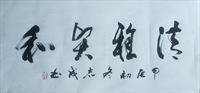 清雅贤和
甲辰初冬志成书